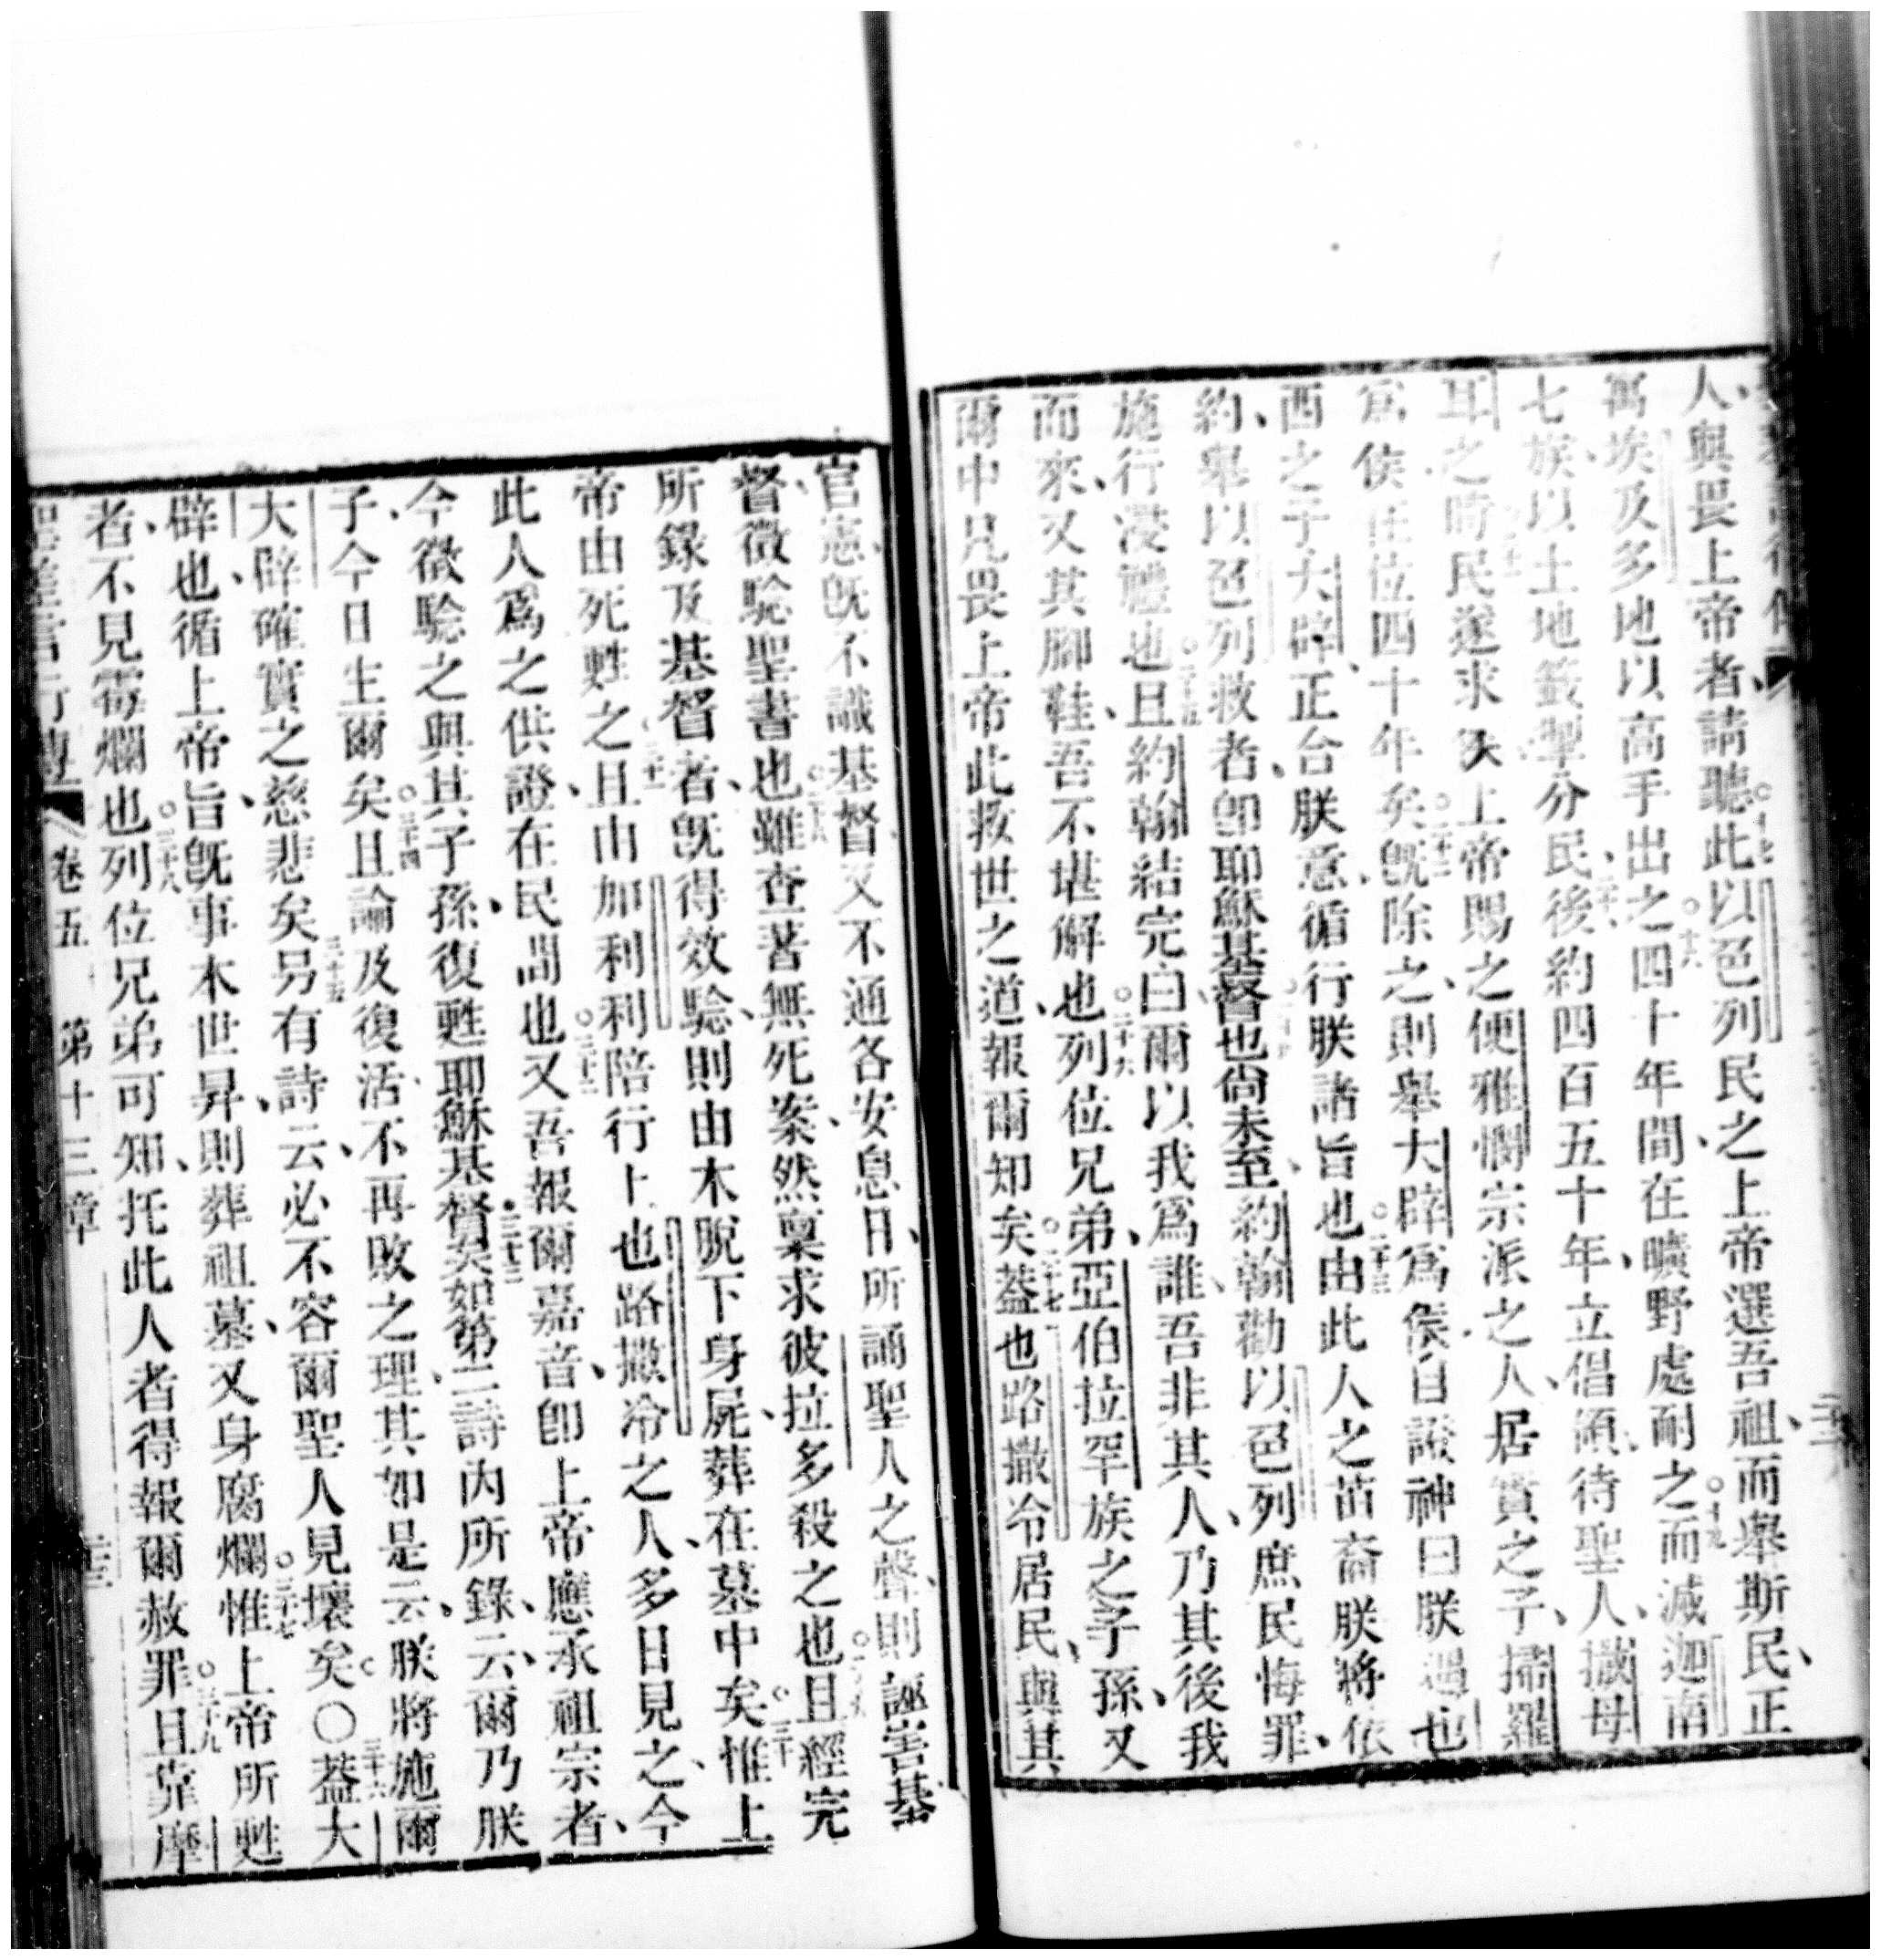 人與畏上帝者請聽此以色列民之上帝選吾祖而舉斯民正
寓埃及多地以高手出之四十年間在曠野處耐之而滅迦南
七族以土地籤掣分民後約四百五十年立倡須待聖人撒母
耳之時民遂求矦上帝賜之便雅憫宗派之人居實之子掃羅
爲矦在位四十年矣旣除之則舉大辟爲矦自證神曰朕遇也
西之子大辟正台朕意循行朕諸旨也由此人之苗裔朕將依
約舉以色列救者卽耶穌基督也尙未至約翰勸以色列庶民悔罪
施行浸禮也且約翰結完白爾以我爲誰吾非其人乃其後我
而來又其脚鞋吾不堪解也列位兄弟亞伯拉罕族之子孫又
爾中凡畏上帝此救世之道報爾知矣葢也路撒冷居民與其
官憲旣不識基督又不通各安息日所誦聖人之聲則誣害基
督徵騐聖書也雖查著無死案然稟求彼拉多殺之也且經完
所錄及基督者旣得效騐則由木脫下身屍葬在墓中矣惟上
帝由死甦之且由加利利陪行上也路撒冷之人多日見之今
此人爲之供證在民間也又吾報爾嘉音卽上帝應承祖宗者
今徵騐之與其子孫復甦耶穌基督矣如第二詩內所錄云爾乃朕
子今日生爾矣且論及復活不再敗之理其如是云朕將施爾
大辟確實之慈悲矣另有詩云必不容爾聖人見壞矣〇葢大
辟也循上帝旨旣事本世昇則葬祖墓又身腐爛惟上帝所甦
者不見霉爛也列位兄弟可知托此人者得報爾赦罪且靠摩
卷五 第十三章